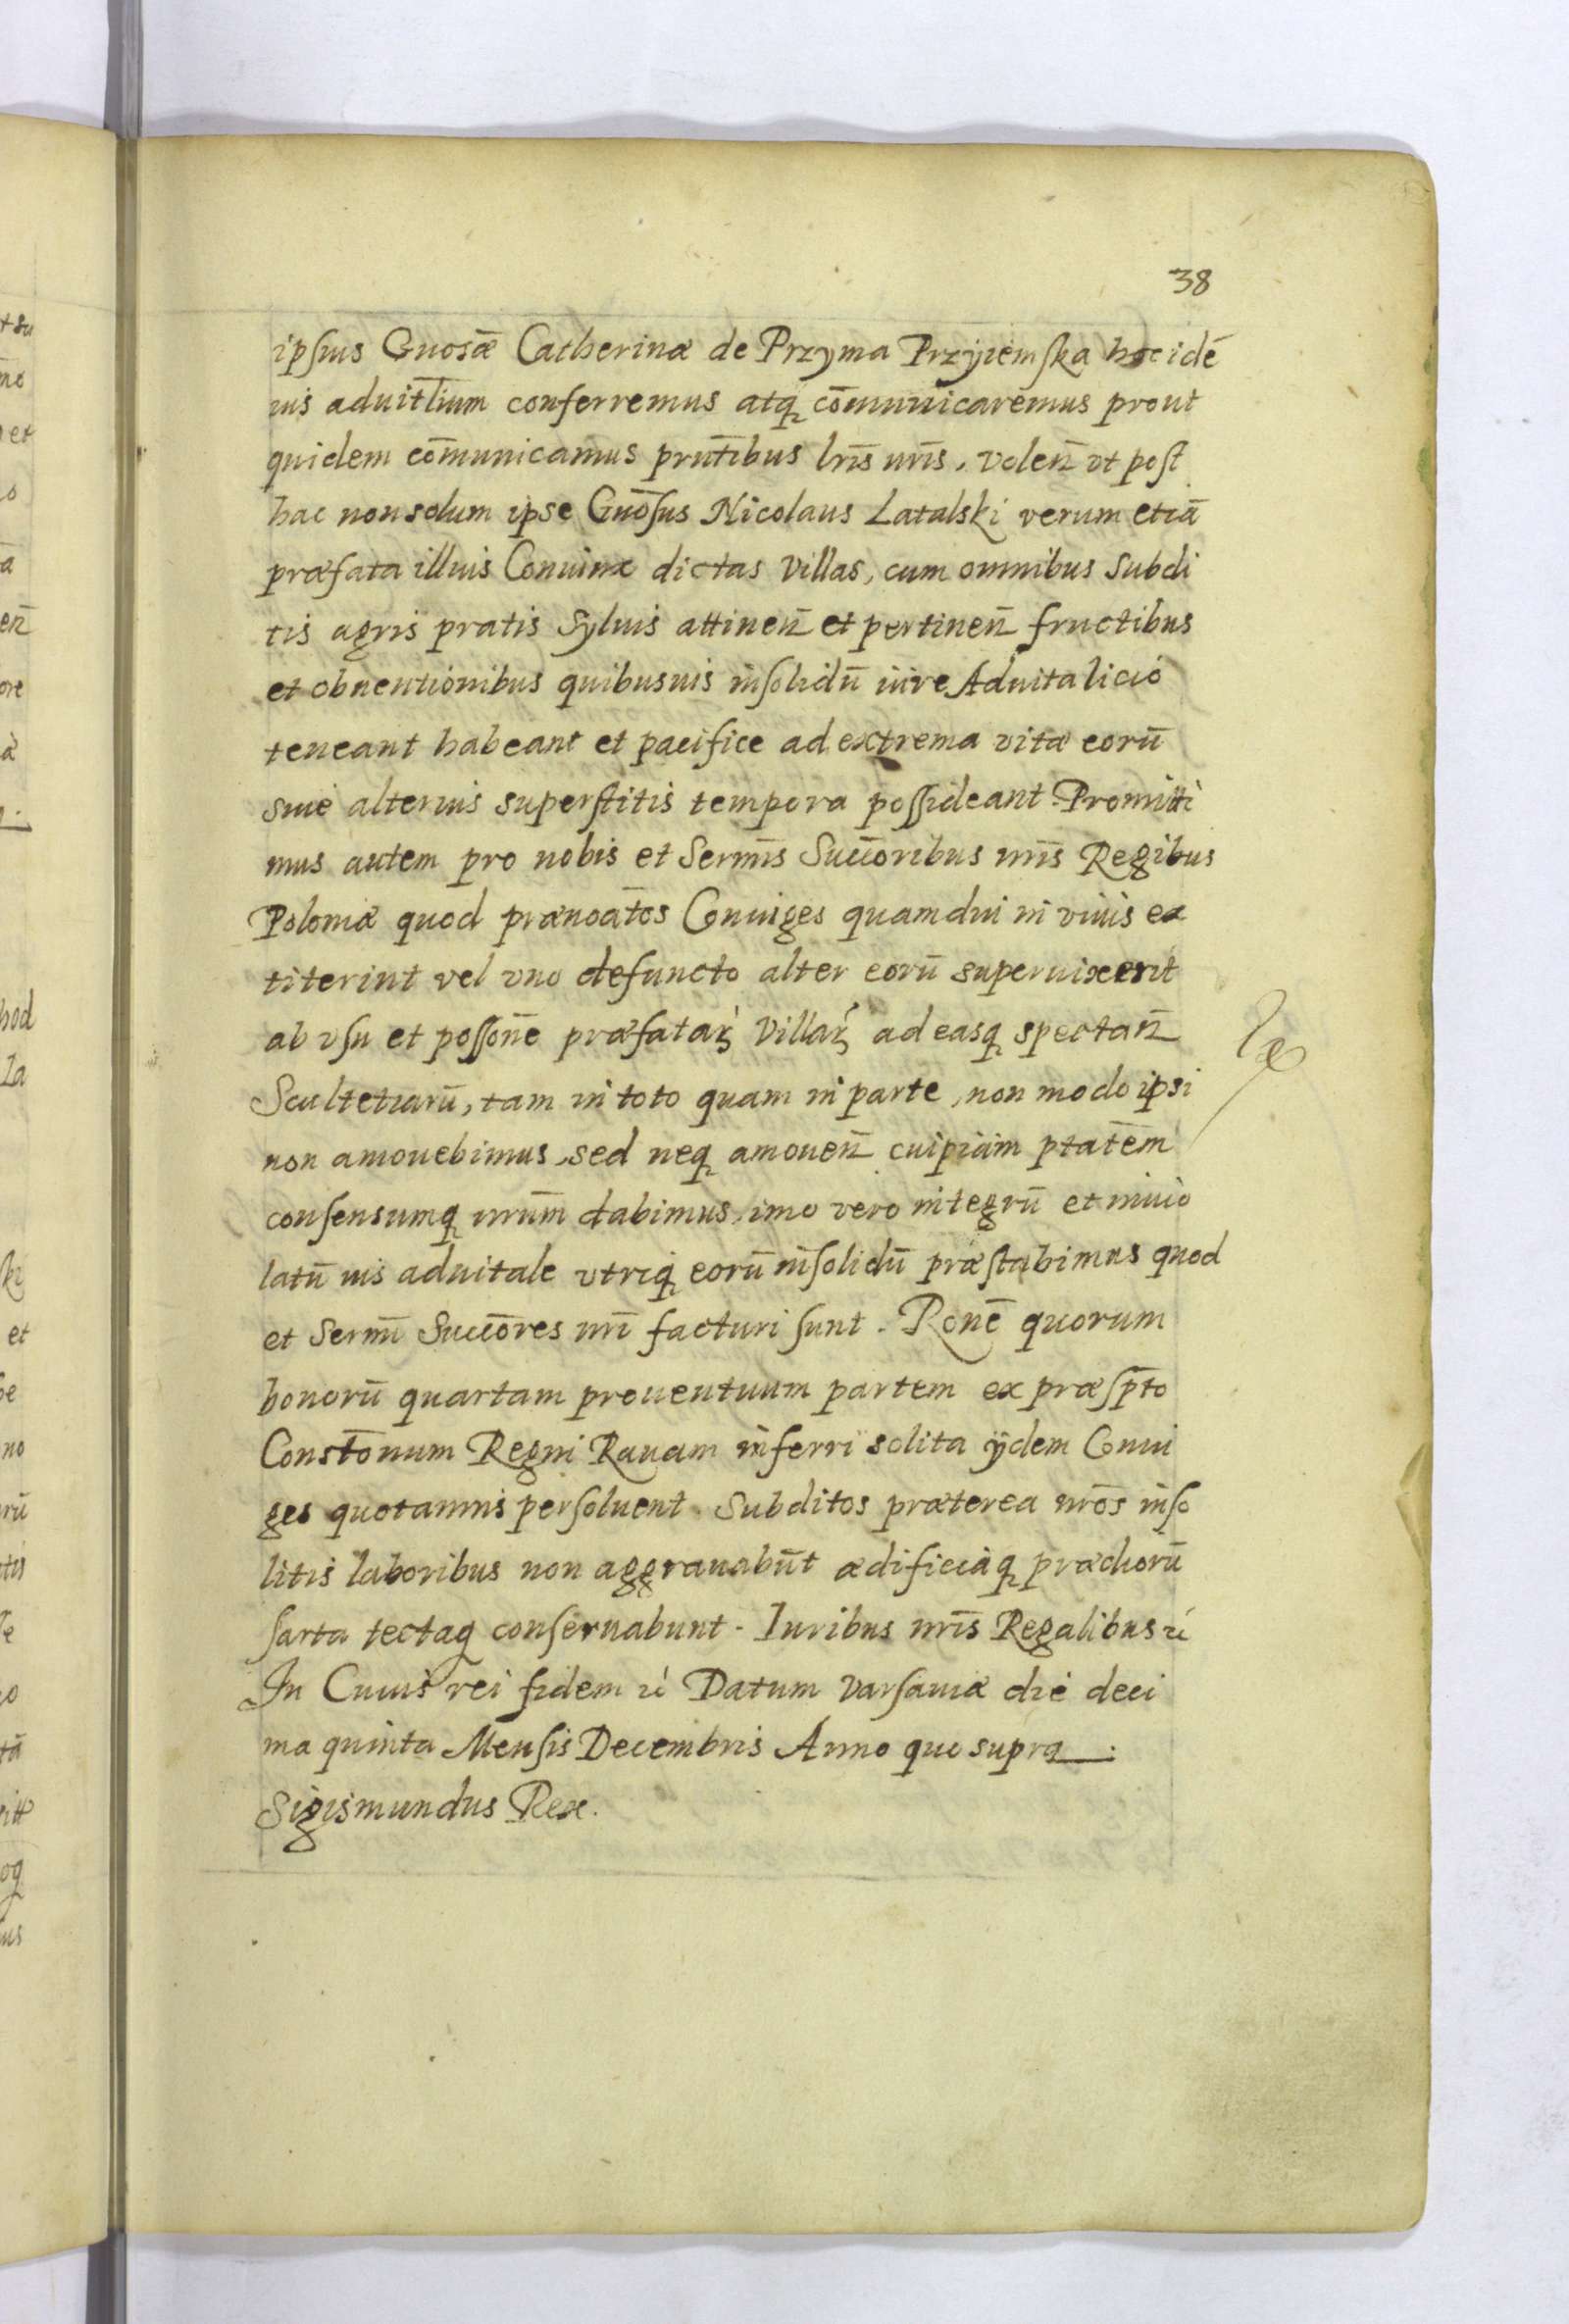 38
ipsius Gnosǣ Catherinæ de Przyma Przyiemska hoc idē
ius aduitl̄ium conferremus atq̨ com̄unicaremus prout
quidem com̄unicamus pnt̄ibus lrīs nrīs, volen̄ vt post
hac non solum ipse Gnōsus Nicolaus Latalski verum etiā
præfata illius Coniunx dictas Villas, cum omnibus Subdi
tis agris pratis Syluis attinen̄ et pertinen̄ fructibus
et obuentionibus quibusuis insolidū iure Aduitalicio
teneant habeant et pacifice ad extrema vitæ eorū
siue alterius superstitis tempora possideant. Promitti
mus autem pro nobis et Sermīs Succōribus nrīs Regibus
Poloniæ quod prænoātos Coniuges quamdiu in viuis ex
titerint vel vno defuncto alter eorū superuixerit
ab vsu et possōne præfatarꝫ Villarꝫ ad easq̨ spectan̄
Scultetiarū, tam in toto quam in parte, non modo ipsi
non amouebimus, sed neq̨ amouen̄ cuipiam ptātem
consensumq̨ nrūm dabimus, imo vero integrū et inuio
latū ius aduitale vtriq̨ eorū insolidū præstabimus quod
et Sermī Succōres nrī facturi sunt. Ronē quorum
bonorū quartam prouentuum partem ex præsp̄to
Constōnum Regni Rauam inferri solita ijdem Coniu
ges quotannis persoluent. Subditos præterea nrōs inso
litis laboribus non aggrauabūt ædificiaq̨ prædiorū
sarta tectaq̨ conseruabunt. Iuribus nrīs Regalibus ꝛc
In Cuius rei fidem ꝛc Datum Varsauiæ die deci
ma quinta Mensis Decembris Anno quo supra.
Sigismundus Rex.